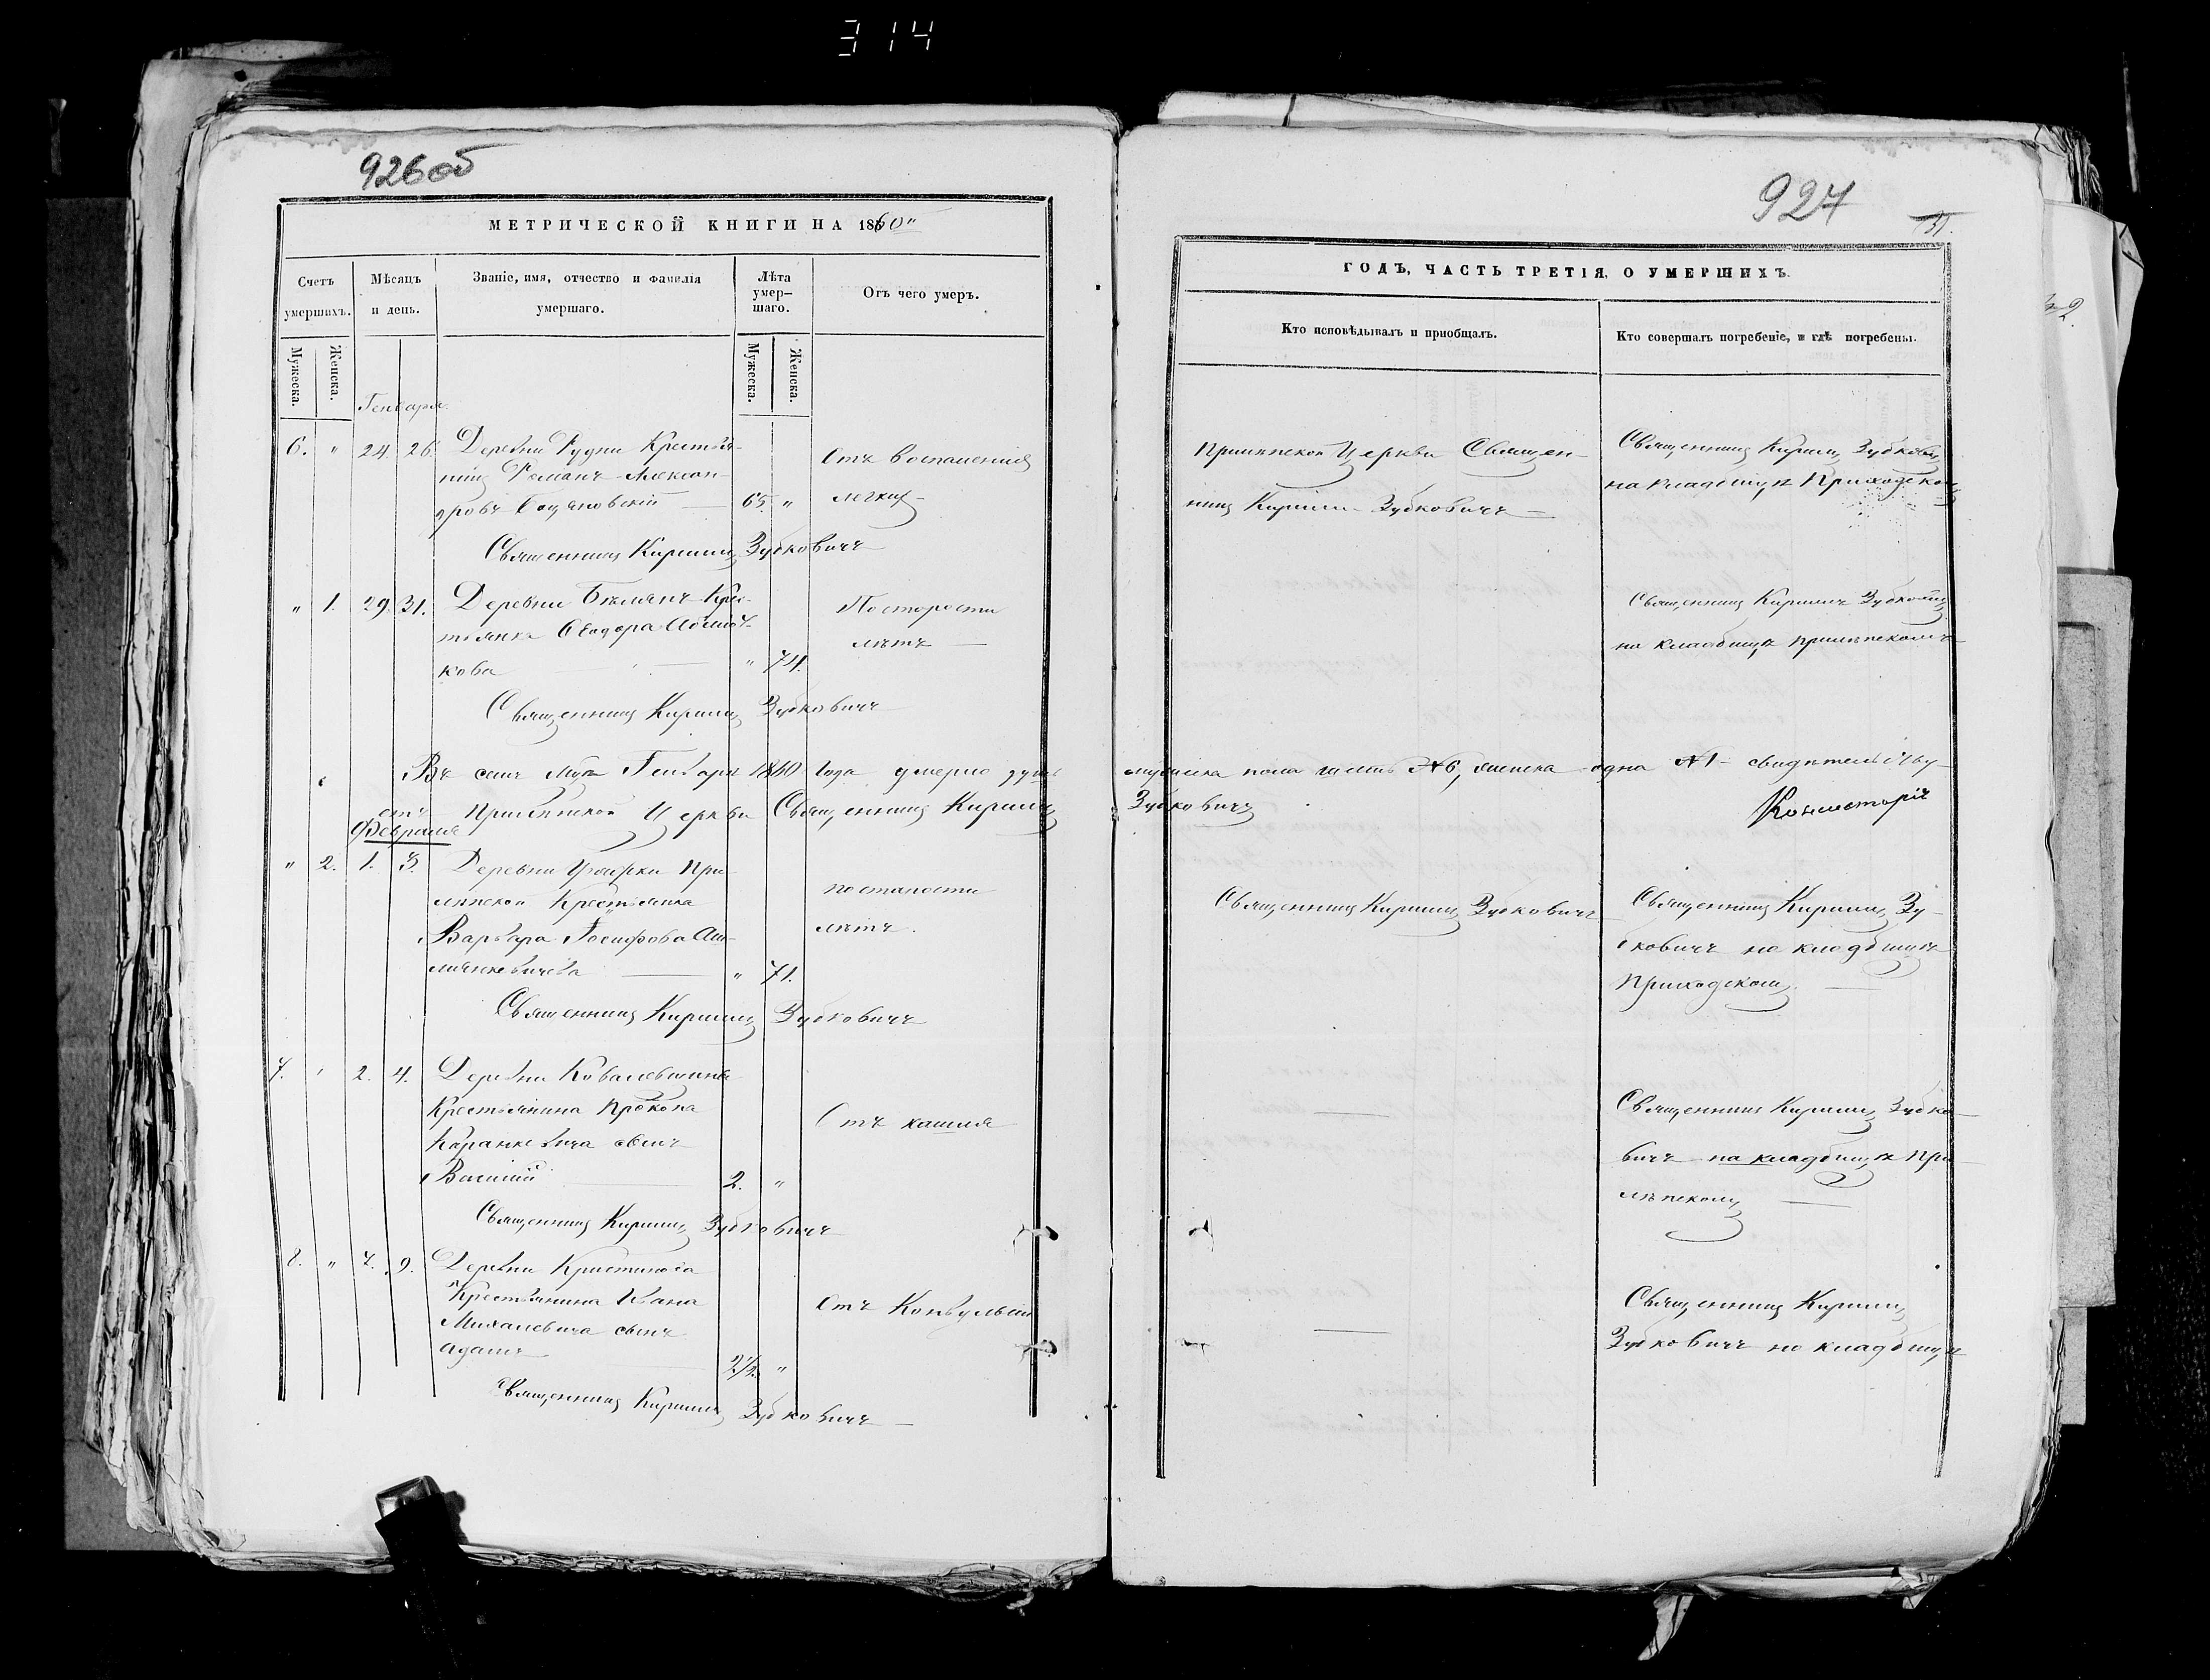 314
926об
МЕТРИЧЕСКОЙ КНИГИ НА 1860"
Счетъ умершихъ.
Мѣсяцъ и день.
Званіе, имя, отчество и фамилія умершаго.
Лѣта умер-шаго.
Отъ чего умеръ.
Мужеска.
Женска.
Мужеска.
Женска.
Генваря
6. " 24. 26. Деревни Рудни Крестья-
нинъ Романъ Алексан-
дровъ 65. "
Отъ воспаленія
легкихъ
Священникъ Кириллъ Зубковичъ
" 1. 29. 31. Деревни Крес-
тьянка Ѳеодора
кова " 74.
По старости
лѣтъ
Священникъ Кириллъ Зубковичъ
Въ семъ Генварѣ 1860 года умерло душъ
Церкви Священникъ Кириллъ
Февраля
" 2. 1. 3. Деревни При-
лѣпской Крестьянка
Варвара Іосифова
" 71.
по старости
лѣтъ.
Священникъ Кириллъ Зубковичъ
7. " 2. 4. Деревни Ковалевщина
Крестьянина Прокопа
сынъ
Василій 2. "
Отъ кашля
Священникъ Кириллъ Зубковичъ
8. " 7. 9. Деревни Кристинова
Крестьянина Ивана
Михалевича сынъ
Адамъ 2½. "
Отъ Конвульсіи
Священникъ Кириллъ Зубковичъ
927
ГОДЪ, ЧАСТЬ ТРЕТІЯ, О УМЕРШИХЪ.
Кто исповѣдывалъ и пріобщалъ.
Кто совершалъ погребеніе, и гдѣ погребены.
Церкви Священ-
никъ Кириллъ Зубковичъ
Священникъ Кириллъ Зубковичъ
на кладбищѣ Приходскомъ
Священникъ Кириллъ Зубковичъ
на кладбищѣ прилѣпскомъ
мужеска пола шесть №6, женска одна №1 свидѣтельству-
Зубковичъ
Священникъ Кириллъ Зубковичъ
Священникъ Кириллъ Зу-
бковичъ на кладбищѣ
Приходскомъ.
Священникъ Кириллъ Зубко-
вичъ на кладбищѣ При-
лѣпскомъ
Священникъ Кириллъ
Зубковичъ на кладбищѣ